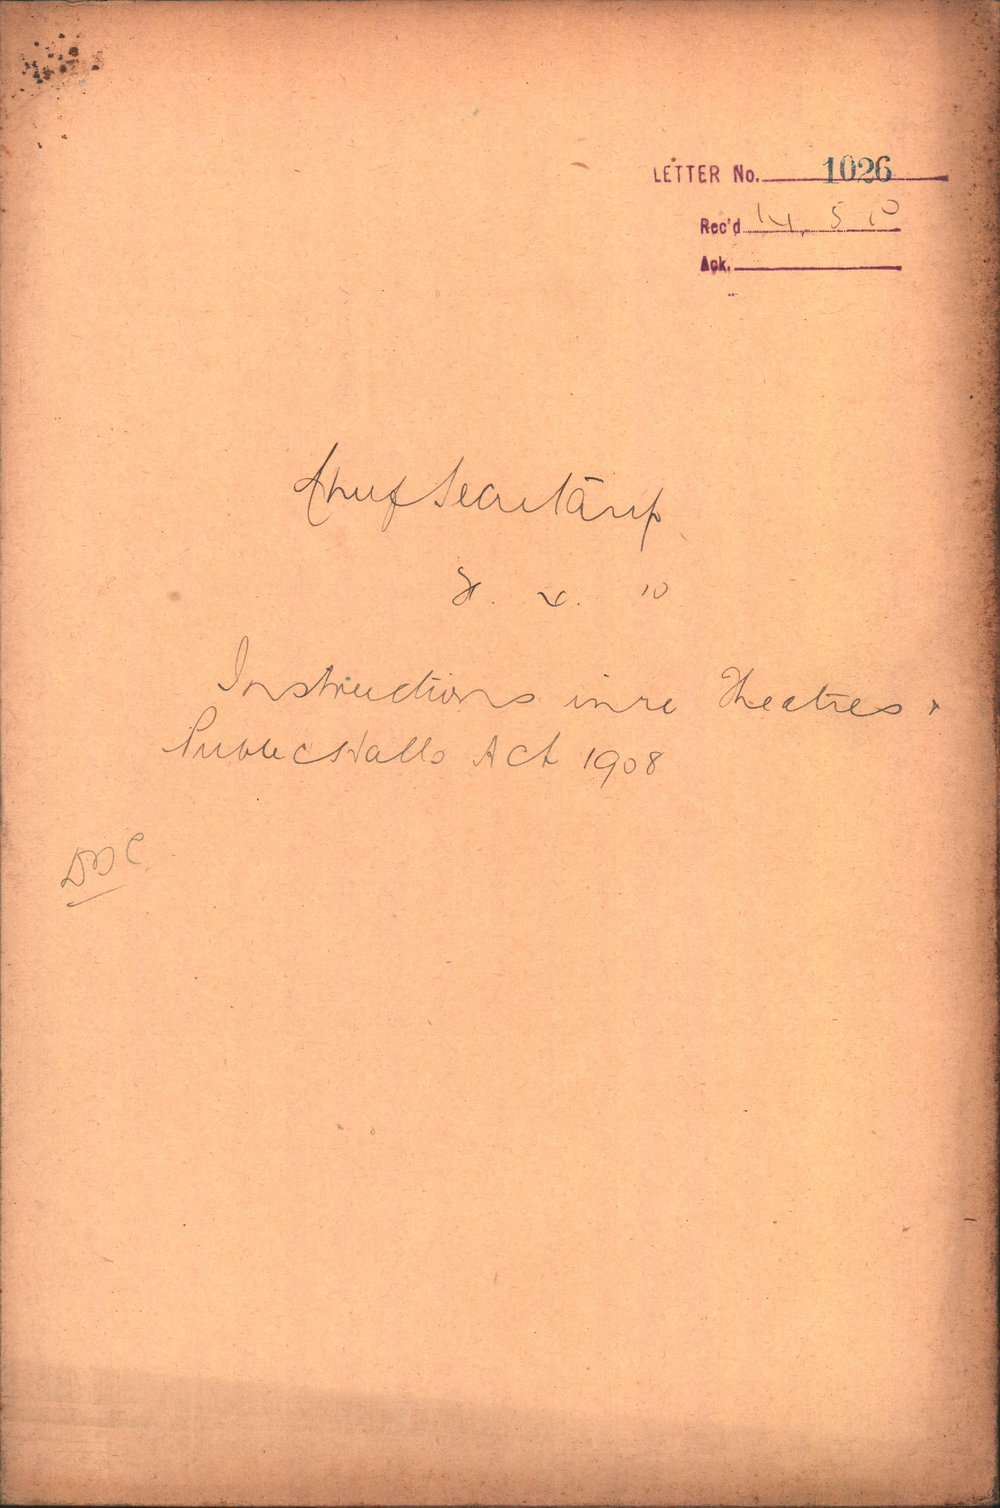 LETTER No. 1026
Rec'd 14. 5 10
Ack.
Chief Secretary
10
Instructions in re Theatres &
Public Halls Act 1908